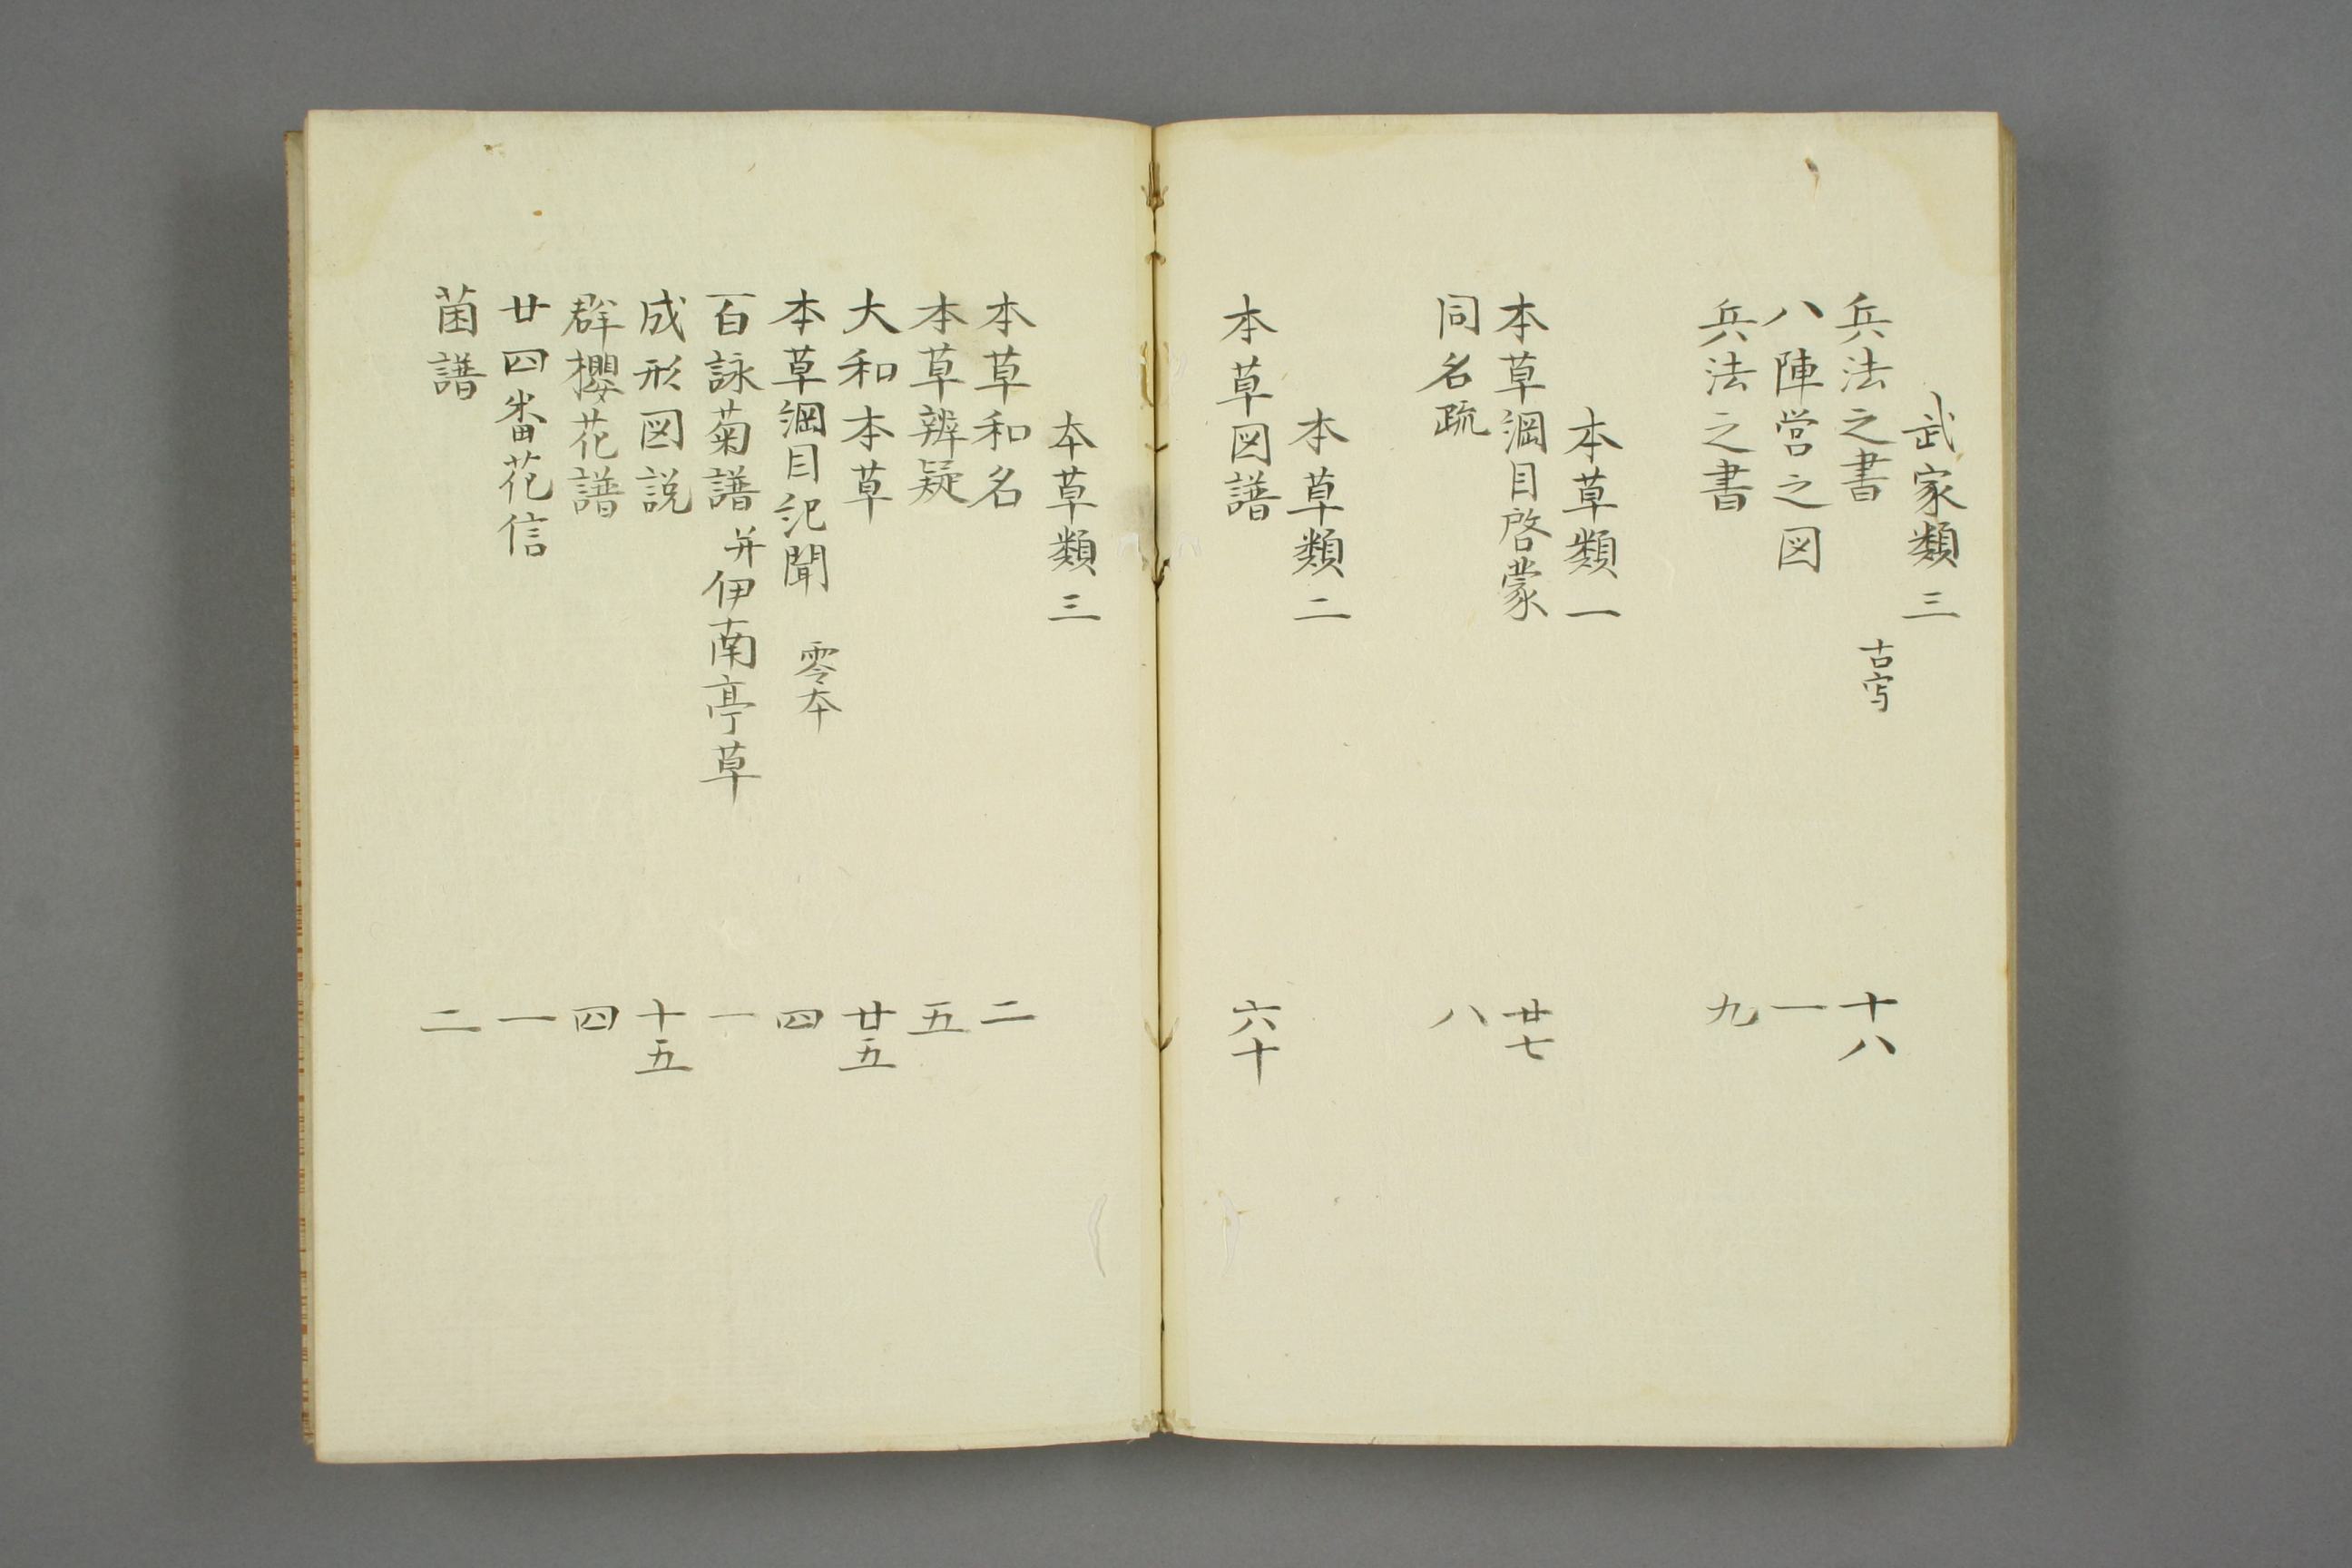 武家類三
兵法之書 古写 十八
八陣営之図 一
兵法之書 九
本草類一
本草綱目啓蒙 廿七
同名疏 八
本草類二
本草図譜 六十
本草類三
本草和名 二
本草辨疑 五
大和本草 廿五
本草綱目記聞 零本 四
百詠菊譜并伊南亭草 一
成形図説 十五
群櫻花譜 四
廿四番花信 一
菌譜 二